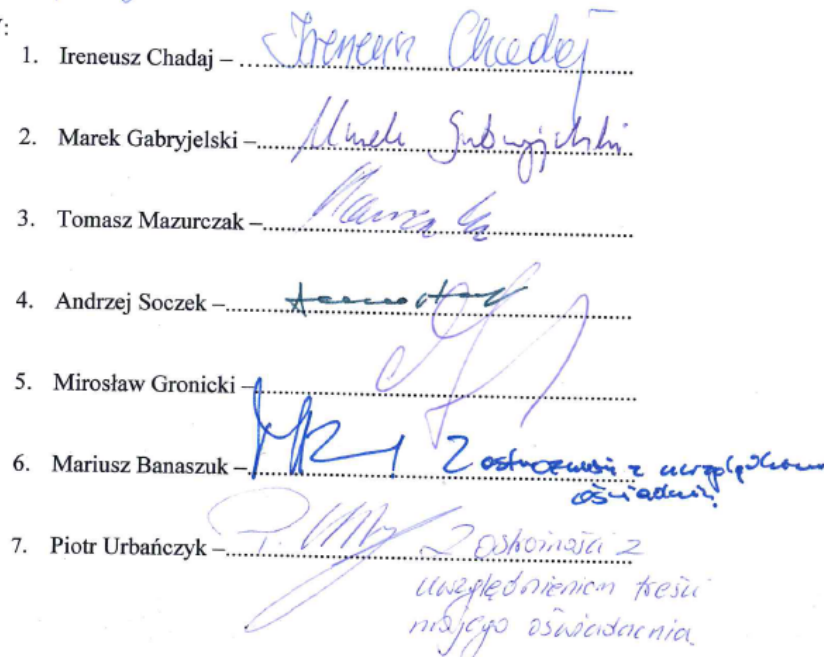 :
1. Ireneusz Chadaj – Ireneusz Chadaj
2. Marek Gabryjelski – Marek Gabryjelski
3. Tomasz Mazurczak –
4. Andrzej Soczek –
5. Mirosław Gronicki –
6. Mariusz Banaszuk – Z ostrożności z uwzględnieniem
oświadczeń
7. Piotr Urbańczyk – Z ostrożności z
uwzględnieniem treści
mojego oświadczenia